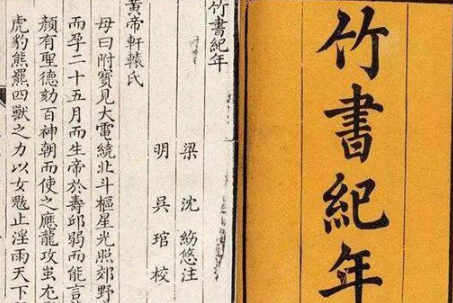 竹書紀年
竹書紀年
梁 沈約悠注
明 吳琯校
黃帝軒轅氏
母曰附寶見大電繞北斗樞星光照郊野
而孕二十五月而生帝於壽邱弱而能言
顏有聖德劾百神朝而使之應龍攻蚩尤
虎豹熊羆四獸之力以女魃止淫雨天下